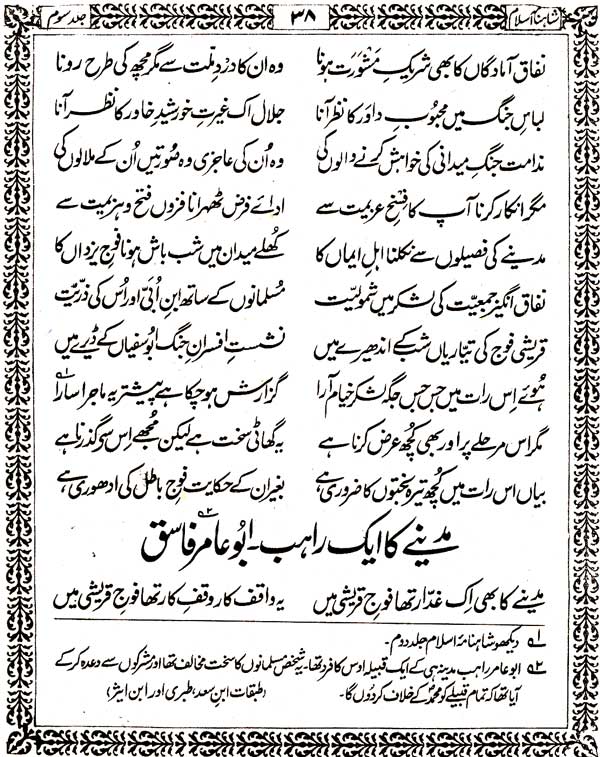 شاہنامۂ اسلام ۳۸ جلد سوم
نفاق آبادگاں کا بھی شریکِ مشورت ہونا وہ ان کا دردِ ملت سے مگر مچھ کی طرح رونا
لباسِ جنگ میں محبوبِ داور کا نظر آنا جلال اک غیرتِ خورشیدِ خاور کا نظر آنا
ندامت جنگِ میدانی کی خواہش کرنے والوں کی وہ اُن کی عاجزی وہ صُورتیں اُن کے ملالوں کی
مگر انکار کرنا آپ کا فسخِ عزیمت سے ادائے فرض ٹھہرانا فزوں فتح و ہزیمت سے
مدینے کی فصیلوں سے نکلنا اہلِ ایماں کا کُھلے میدان میں شب باش ہونا فوجِ یزداں کا
نفاق انگیز جمعیت کی لشکر میں شمولیت مُسلمانوں کے ساتھ ابنِ اُبَیّ اور اُس کی ذرّیت
قریشی فوج کی تیّاریاں شب کے اندھیرے میں نشستِ افسرانِ جنگ ابُوسفیاں کے ڈیرے میں
ہُوئے اِس رات میں جس جس جگہ لشکر خیام آرا گزارش ہو چکا ہے پیشتر یہ ماجرا سارا ؎۱
مگر اس مرحلے پر اور بھی کچُھ عرض کرنا ہے یہ گھاٹی سخت ہے لیکن مُجھے اِس سے گذرنا ہے
بیاں اس رات میں کُچھ تیرہ بختوں کا ضروری ہے بغیر ان کے حکایت فوجِ باطل کی ادھوری ہے
مدینے کا ایک راہب۔ ابُو عامر فاسق ؎۲
مدینے کا بھی اِک غدّار تھا فوجِ قریشی میں یہ واقف کار وقفِ کار تھا فوجِ قریشی میں
؎۱ دیکھو شاہنامۂ اسلام جلد دوم۔
؎۲ ابو عامر راہب مدینہ ہی کے ایک قبیلہ اوس کا فرد تھا۔ یہ شخص مسلمانوں کا سخت مخالف تھا اور مشرکوں سے وعدہ کر کے
آیا تھا کہ تمام قبیلے کو محمدؐ کے خلاف کر دُوں گا۔ (طبقات ابنِ سعد، طبری اور ابن ایثر)